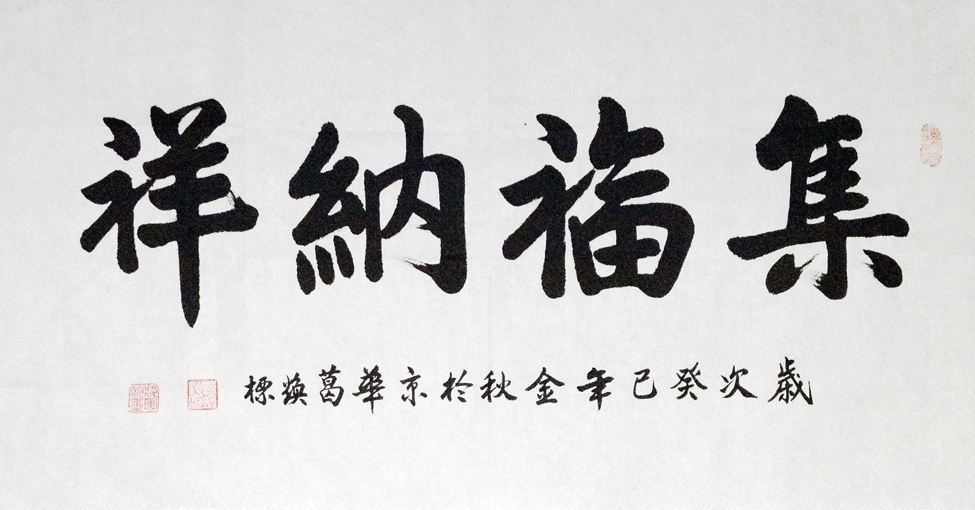 集福納祥
歲次癸巳年金秋於京華葛煥標